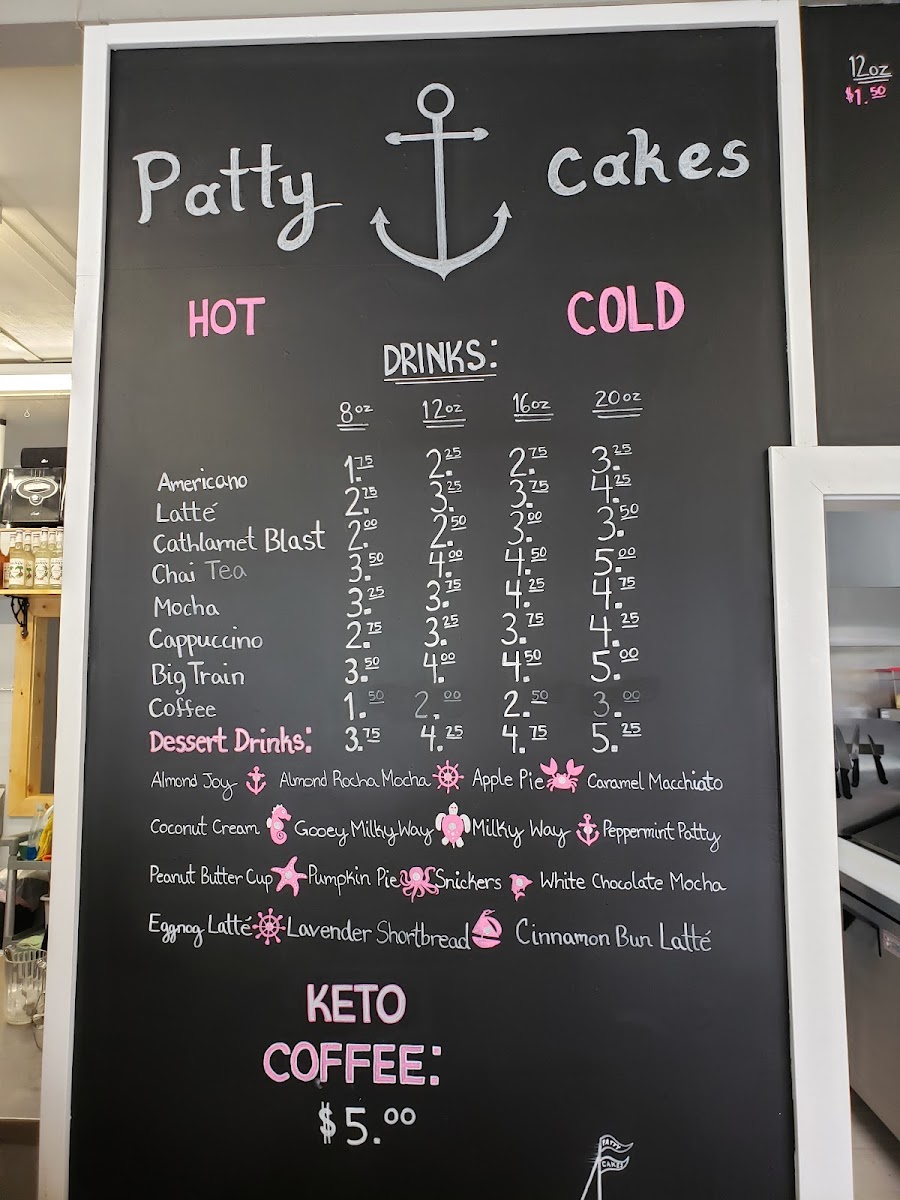 Patty Cakes
12oz
$1.50
HOT COLD
DRINKS:
8oz 12oz 16oz 20oz
Americano 1.75 2.25 2.75 3.25
Latté 2.75 3.25 3.75 4.25
Cathlamet Blast 2.00 2.50 3.00 3.50
Chai Tea 3.50 4.00 4.50 5.00
Mocha 3.25 3.75 4.25 4.75
Cappuccino 2.75 3.25 3.75 4.25
Big Train 3.50 4.00 4.50 5.00
Coffee 1.50 2.00 2.50 3.00
Dessert Drinks: 3.75 4.25 4.75 5.25
Almond Joy Almond Rocha Mocha Apple Pie Caramel Macchiato
Coconut Cream Gooey Milky Way Milky Way Peppermint Patty
Peanut Butter Cup Pumpkin Pie Snickers White Chocolate Mocha
Eggnog Latté Lavender Shortbread Cinnamon Bun Latté
KETO
COFFEE:
$5.00
PATTY
CAKES